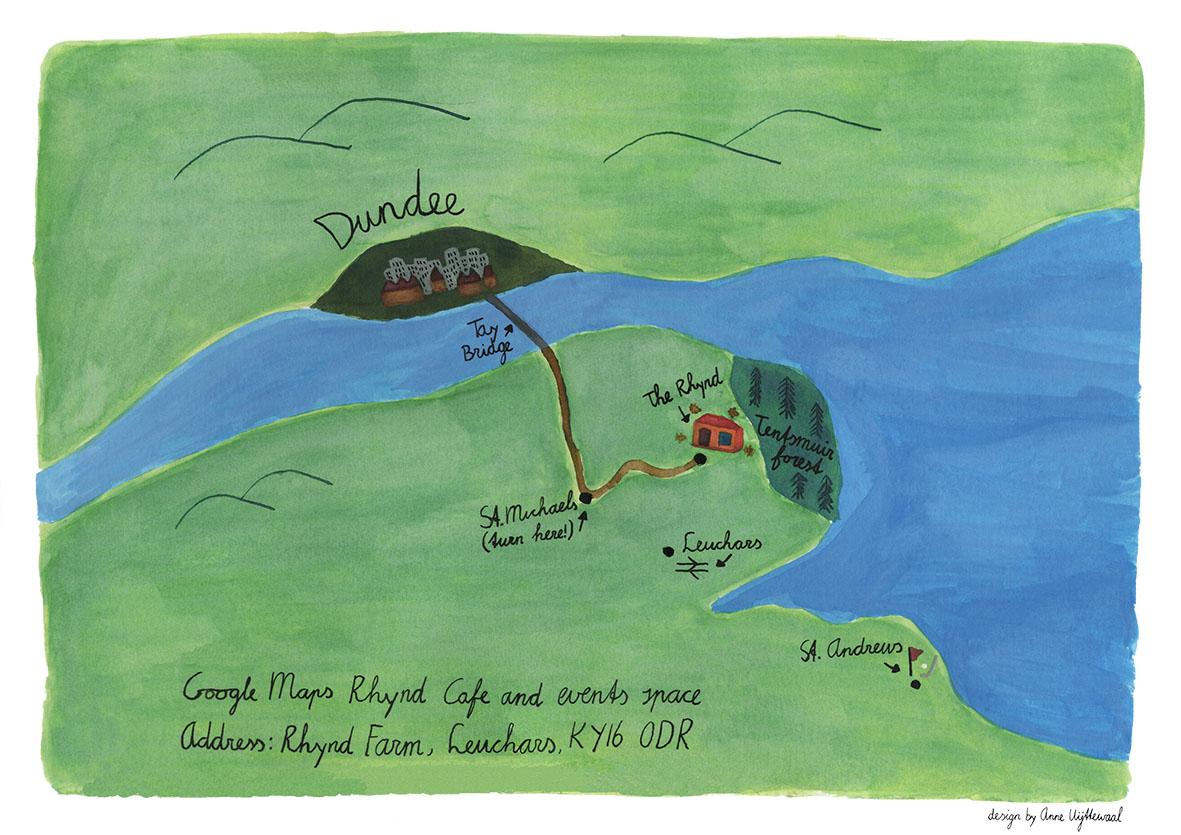 Dundee
Tay
Bridge
The Rhynd
Tentsmuir
forest
St. Michaels
(turn here!)
Leuchars
St. Andrews
Google Maps Rhynd Cafe and events space
Address: Rhynd Farm, Leuchars, KY16 0DR
design by Anne Uijttewaal